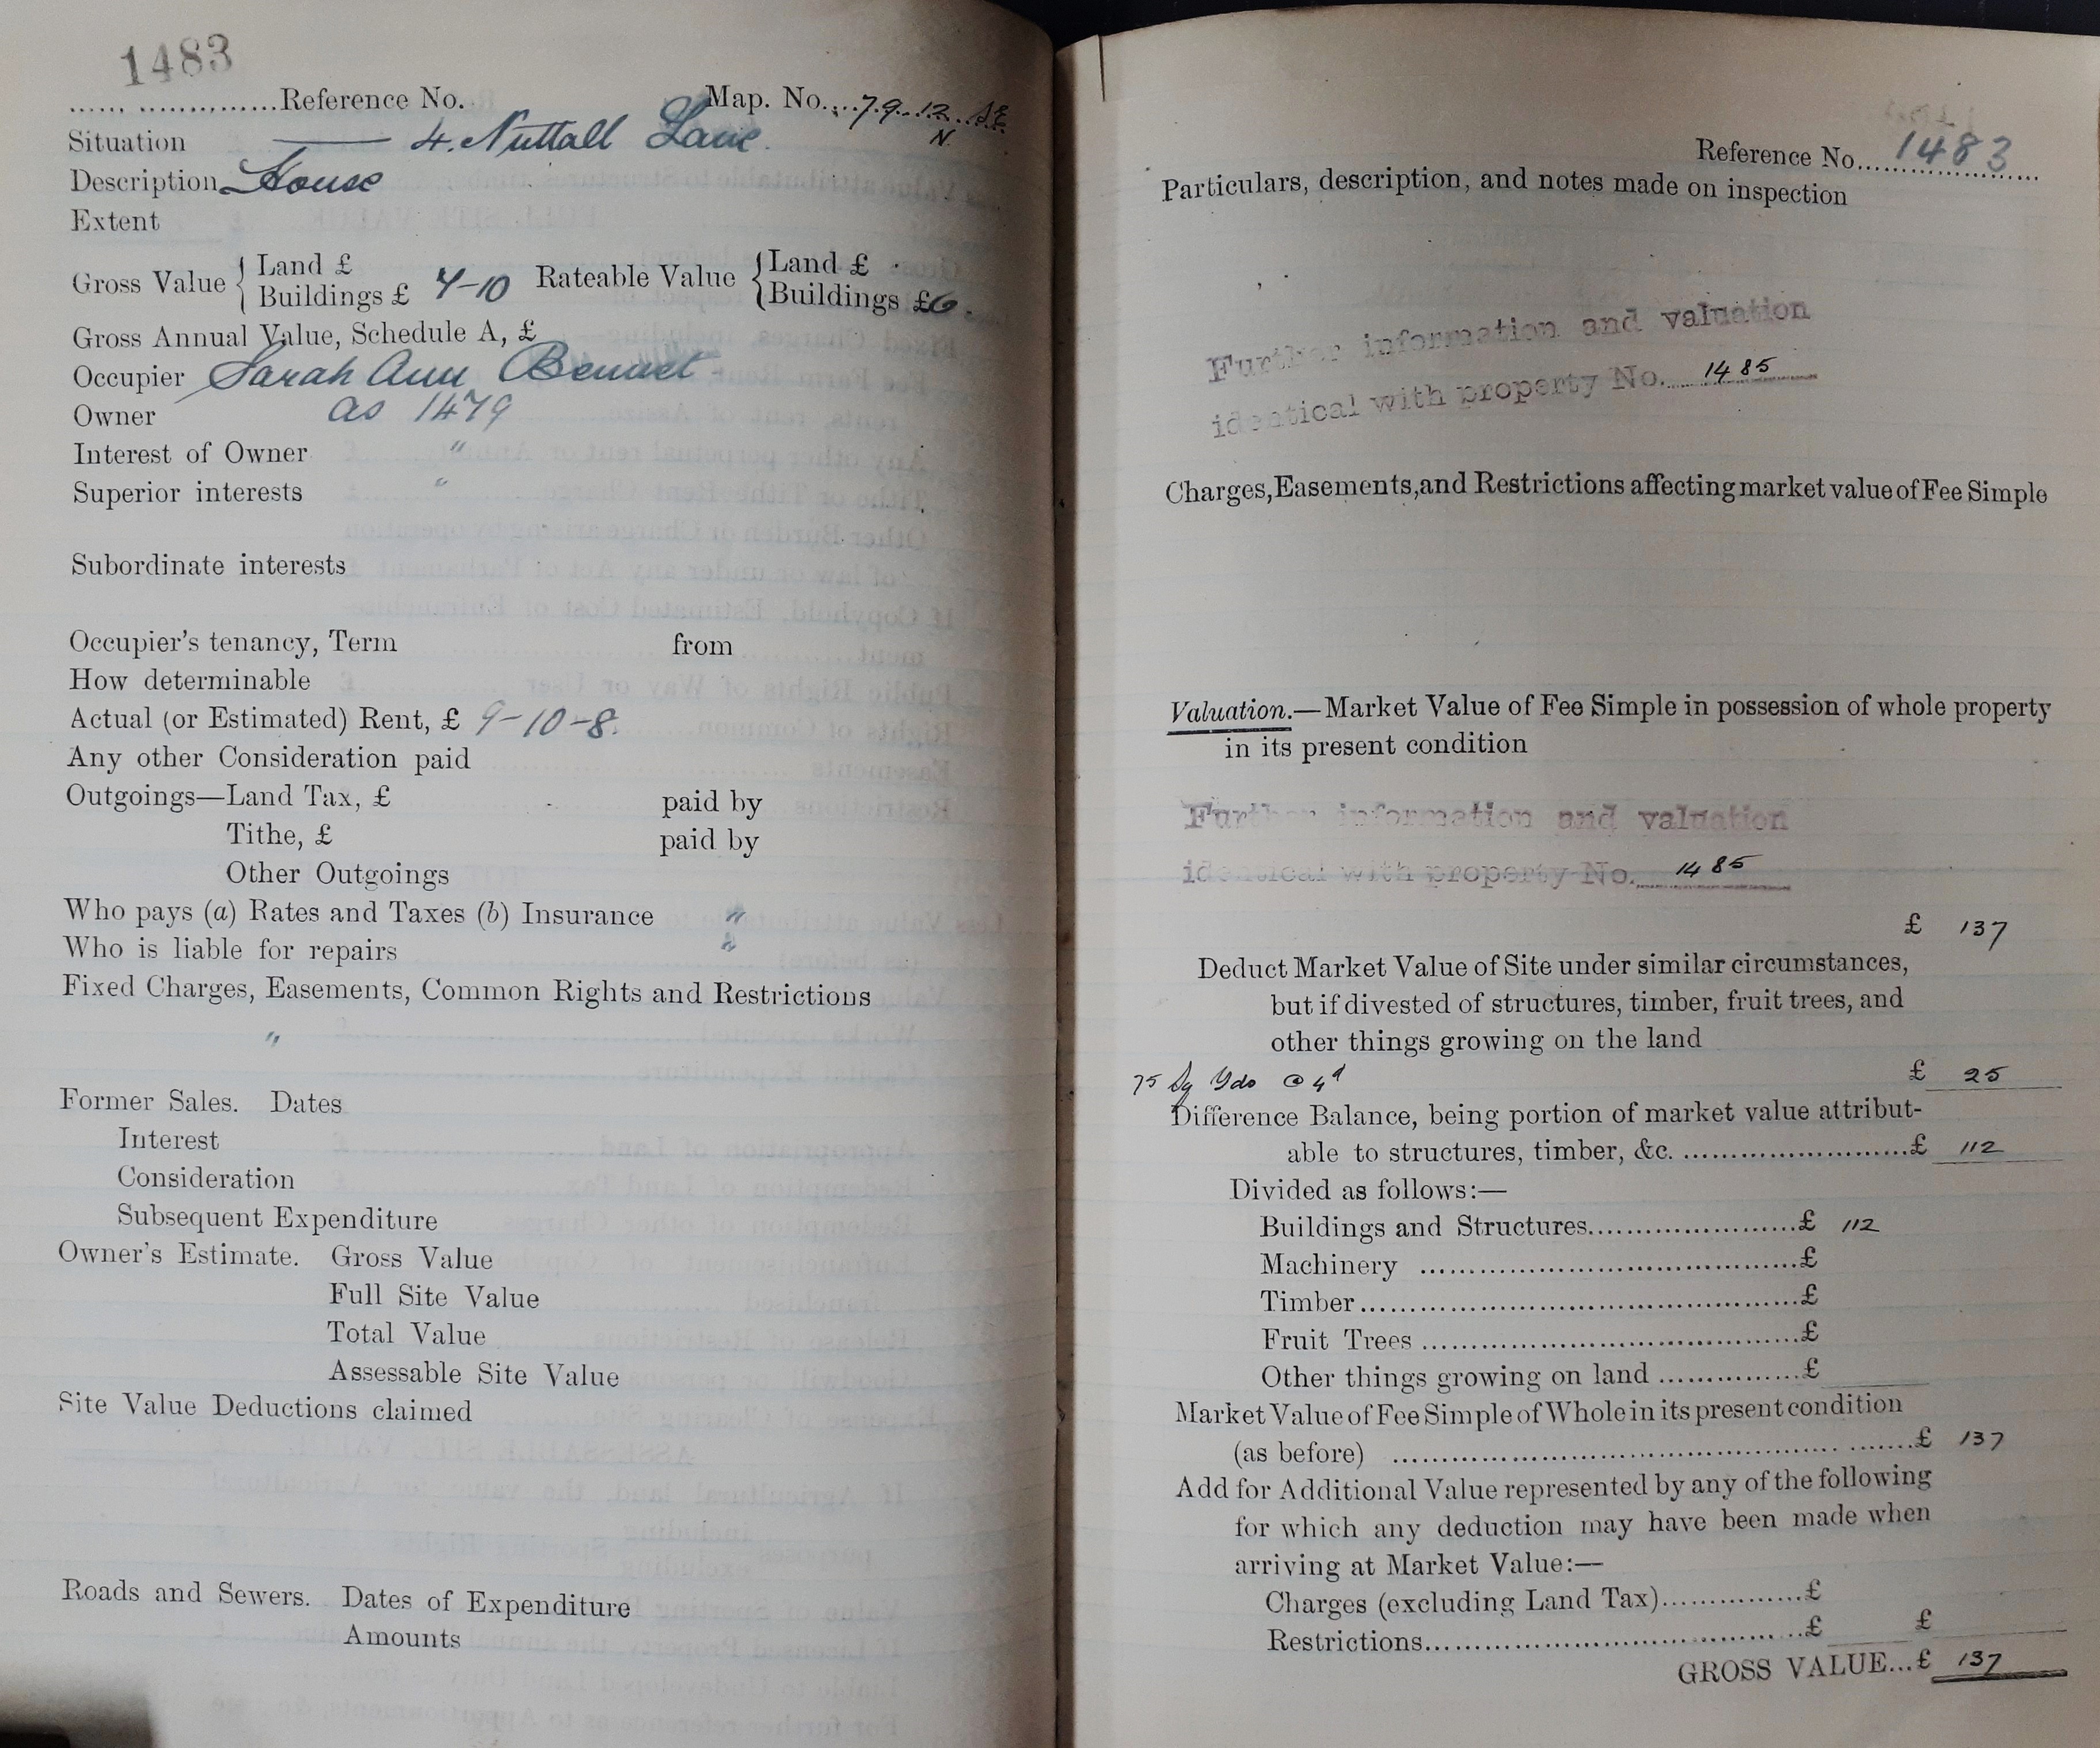 1483
Reference No. Map. No. 79.12. SE
N.
Situation — 4. Nuttall Lane.
Description House
Extent
Gross Value { Land £
Buildings £ 7-10 Rateable Value { Land £
Buildings £ 6.
Gross Annual Value, Schedule A, £
Occupier Sarah Ann Bennet
Owner as 1479
Interest of Owner "
Superior interests "
Subordinate interests
Occupier's tenancy, Term from
How determinable
Actual (or Estimated) Rent, £ 9-10-8.
Any other Consideration paid
Outgoings—Land Tax, £ paid by
Tithe, £ paid by
Other Outgoings
Who pays (a) Rates and Taxes (b) Insurance "
Who is liable for repairs "
Fixed Charges, Easements, Common Rights and Restrictions
"
Former Sales. Dates
Interest
Consideration
Subsequent Expenditure
Owner's Estimate. Gross Value
Full Site Value
Total Value
Assessable Site Value
Site Value Deductions claimed
Roads and Sewers. Dates of Expenditure
Amounts
Reference No. 1483
Particulars, description, and notes made on inspection
Further information and valuation
identical with property No. 1485
Charges, Easements, and Restrictions affecting market value of Fee Simple
Valuation.—Market Value of Fee Simple in possession of whole property
in its present condition
Further information and valuation
identical with property No. 1485
£ 137
Deduct Market Value of Site under similar circumstances,
but if divested of structures, timber, fruit trees, and
other things growing on the land
75 Sq Yds @ 4d £ 25
Difference Balance, being portion of market value attribut-
able to structures, timber, &c. £ 112
Divided as follows:—
Buildings and Structures £ 112
Machinery £
Timber £
Fruit Trees £
Other things growing on land £
Market Value of Fee Simple of Whole in its present condition
(as before) £ 137
Add for Additional Value represented by any of the following
for which any deduction may have been made when
arriving at Market Value:—
Charges (excluding Land Tax) £
Restrictions £ £
GROSS VALUE...£ 137